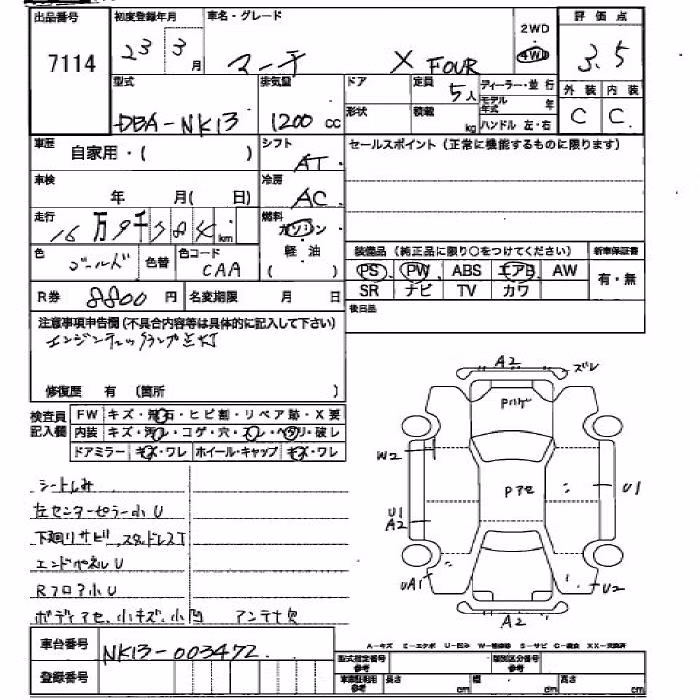 出品番号 初度登録年月 車名・グレード 2WD 評価点
7114 23 3月 マーチ X FOUR 4WD 3.5
型式 排気量 ドア 定員 5人 ディーラー・並行 外装 内装
DBA-NK13 1200cc 形状 積載 kg モデル年式 年 C C
ハンドル 左・右
車歴 自家用・( ) シフト AT セールスポイント(正常に機能するものに限ります)
車検 年 月( 日) 冷房 AC
走行 16万9千 km 燃料 ガソリン
軽油
( )
色 ゴールド 色替 色コード CAA
装備品(純正品に限り○をつけてください) 新車保証書
PS PW ABS エアB AW 有・無
SR ナビ TV カワ
R券 8800円 名変期限 月 日 後日品
注意事項申告欄(不具合内容等は具体的に記入して下さい)
エンジンチェックランプ点灯
修復歴 有 (箇所 )
検査員記入欄 FW キズ・飛石・ヒビ割・リペア跡・X要
内装 キズ・汚レ・コゲ・穴・スレ・ヘタリ・破レ
ドアミラー キズ・ワレ ホイール・キャップ キズ・ワレ
シートしみ
左センターピラー小U
下廻りサビ、スタッドレスT
エンドパネルU
Rフロア小U
ボディアセ、小キズ、小凹 アンテナ欠
A2 ズレ
Pハゲ
W2
Pアセ
U1
U1
A2
UA1
U2
A2
車台番号 NK13-003472
登録番号
A-キズ E-エクボ U-凹み W-補修跡 S-サビ C-腐食 XX-交換済
型式指定番号 参考 類別区分番号 参考
車庫証明用 参考 長さ cm 幅 cm 高さ cm